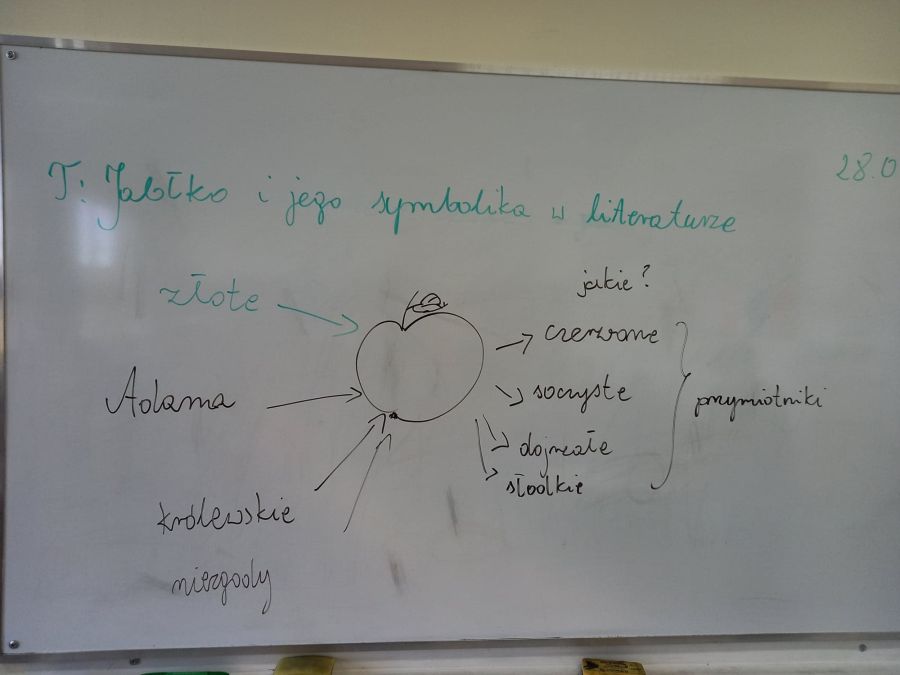 28.0
T: Jabłko i jego symbolika w literaturze
jakie?
złote
czerwone
Adama
soczyste
przymiotniki
dojrzałe
słodkie
królewskie
niezgody